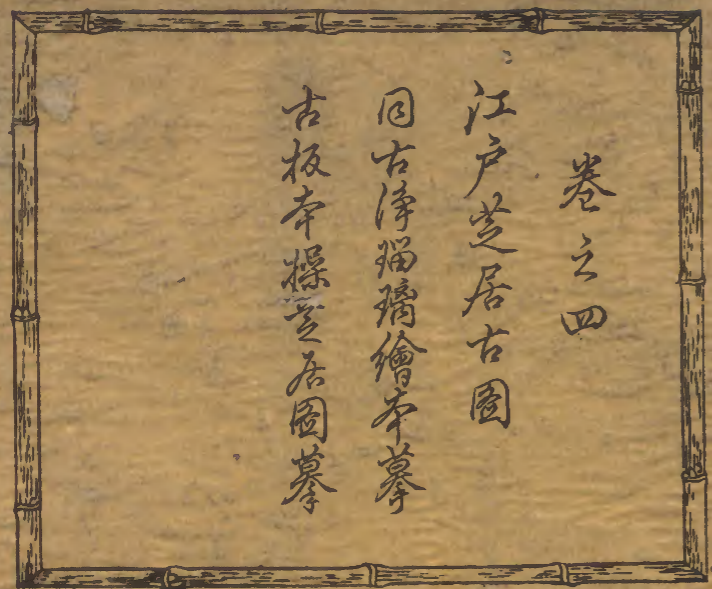 巻之四
江戸芝居古圖
同古浄瑠璃繪本摹
古板本操芝居圖摹